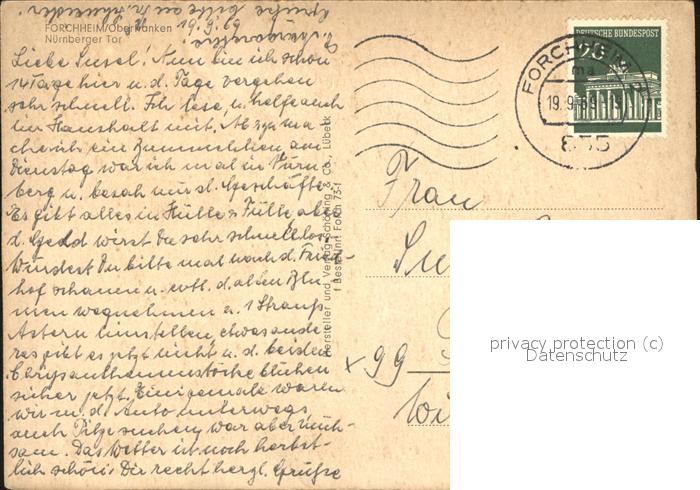 FORCHHEIM/Oberfranken
Nürnberger Tor
19.9.69
Liebe Susel! Nun bin ich schon
14 Tage hier u. d. Tage vergehen
sehr schnell. Ich lese u. helfe auch
im Haushalt mit. Ab u. zu ma-
che ich ein Bummelchen am
Dienstag war ich mal in Nürn-
berg u. besah mir d. Geschäfte
Es gibt alles in Hülle u. Fülle aber
d. Geld wirst Du sehr schnell los.
Würdest Du bitte mal nach d. Fried-
hof schauen u. evtl. d. alten Blu-
men wegnehmen u. 1 Strauß
Astern einstellen, etwas ande-
res gibt es jetzt nicht u. d. beiden
Chrysanthemenstöcke blühen
sicher jetzt. Einigemale waren
wir m. d. Auto unterwegs
auch Pilze suchen, war aber müh-
sam. Das Wetter ist noch herbst-
lich schön. Dir recht herzl. Grüße
Hersteller und Verlag Schöning & Co., Lübeck
Bestell-Nr. Forch 73-1
DEUTSCHE BUNDESPOST
20
FORCHHEIM
ma
19.9.69
855
Frau
Su
x 99
privacy protection (c)
Datenschutz